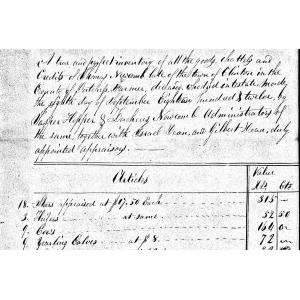 A true and perfect inventory of all the goods, chattels and
Credits of Thomas Newcomb late of the town of Clinton in the
County of Dutchess, Farmer, deceased, who died intestate, made
the eighth day of September Eighteen hundred & twelve, by
& Zacheus Newcomb Administrators of
the same, together with Israel Dean, and Gilbert Dean, duly
appointed appraisors.
Articles
Value
Dls Cts
18. appraised at $17.50 Each 315 —
5. Heifers at same 52 50
9. Cows
9. Yearling Calves at $8. 72